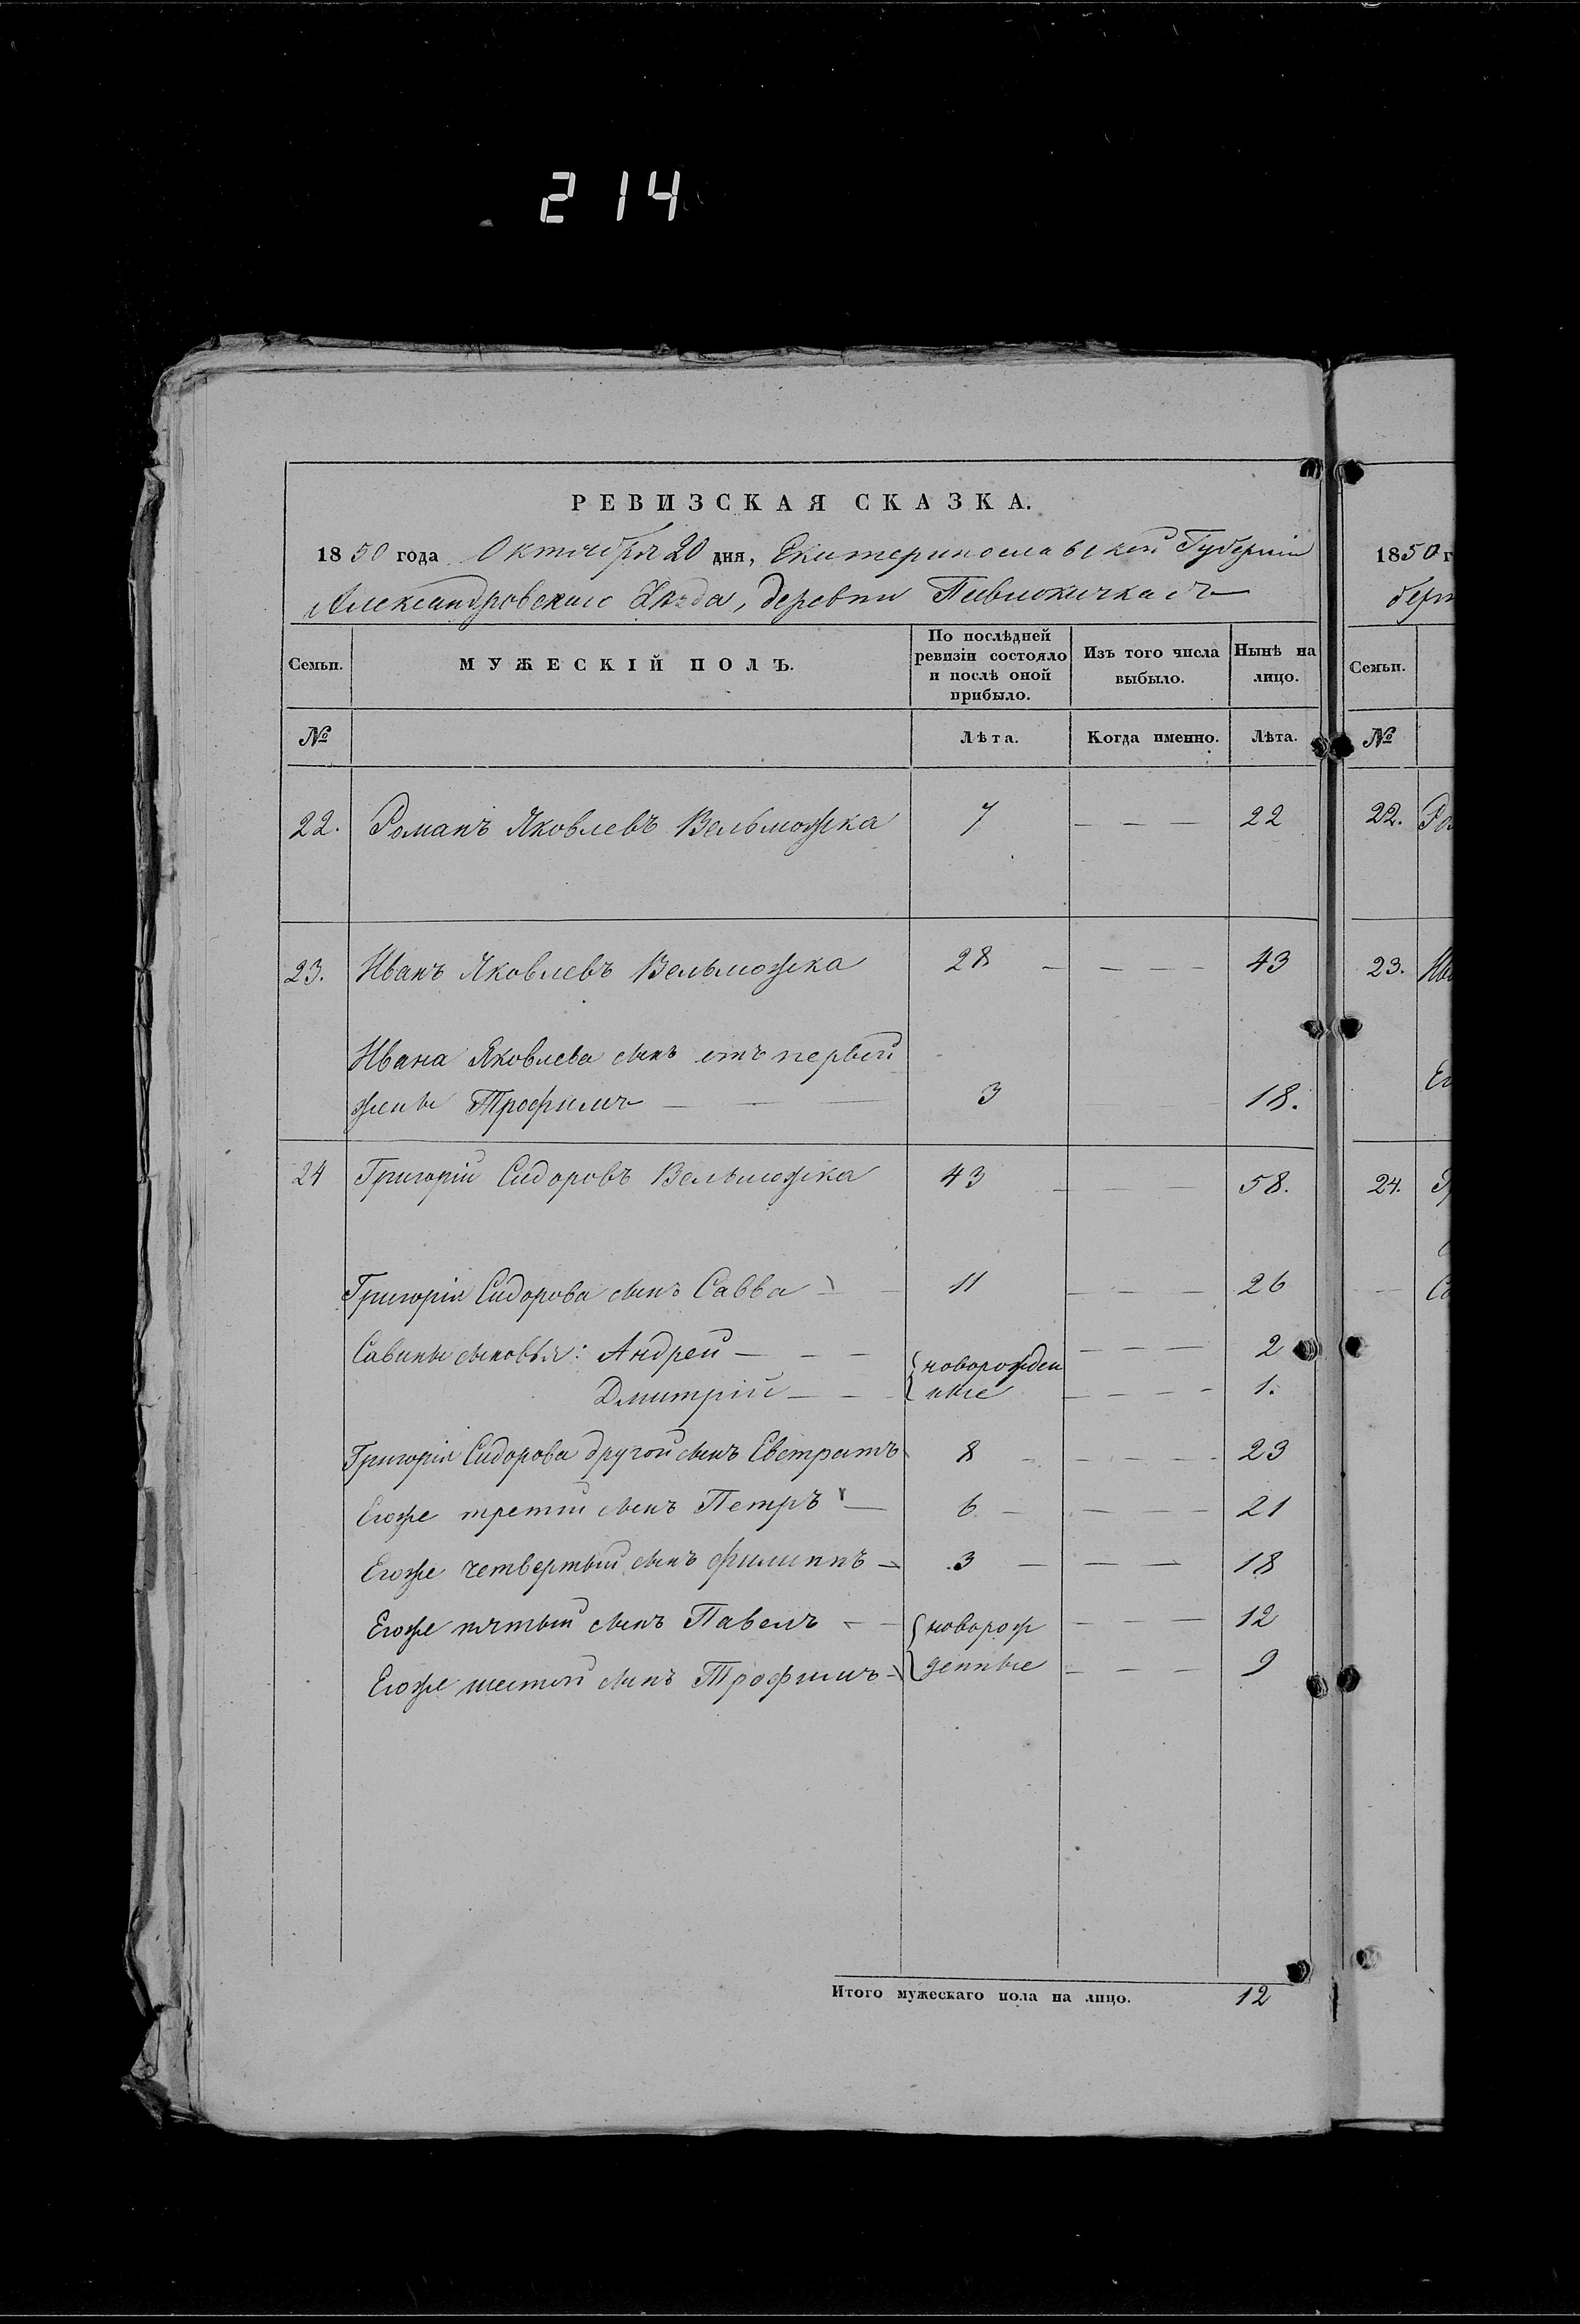 214
РЕВИЗСКАЯ СКАЗКА.
1850 года Октября 20 дня, Екатеринославской Губерніи
Александровскаго Уѣзда, деревни
Семьи. МУЖЕСКІЙ ПОЛЪ. По послѣдней ревизіи состояло и послѣ оной прибыло. Изъ того числа выбыло. Нынѣ на лицо.
№ Лѣта. Когда именно. Лѣта.
22. Романъ Яковлевъ Вельможка 7 — — — 22
23. Иванъ Яковлевъ Вельможка 28 — — — — 43
Ивана Яковлева сынъ отъ первой
жены Трофимъ — — — 3 18.
24 Григорій Сидоровъ Вельможка 43 — — — 58.
Григорія Сидорова сынъ Савва — — 11 — — — 26
Савины сыновья: Андрей — — — новорожден — — — 2
Дмитрій — — ные — — — — 1.
Григорія Сидорова другой сынъ Евстратъ 8 — — — — — 23
Егоже третій сынъ Петръ — 6 — — — — 21
Егоже четвертый сынъ Филиппъ — 3 — — — 18
Егоже пятый сынъ Павелъ — — новорож — — — 12
Егоже шестой сынъ Трофимъ — денные — — — 9
Итого мужескаго пола на лицо. 12
1850 г
берн
Семьи.
№
22. Ро
23. Ива
Ег
24. Г
Са